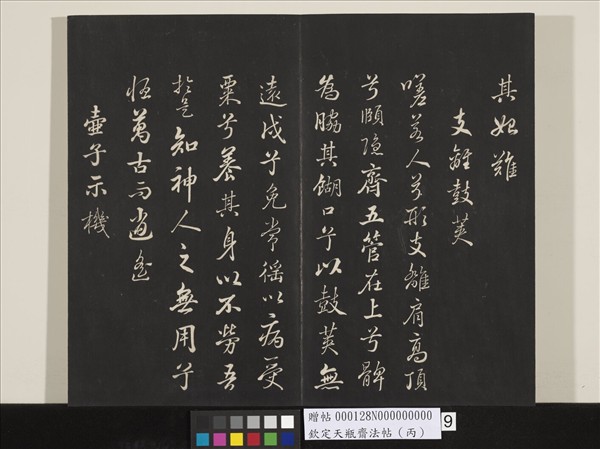 其
支離鼓筴
嗟若人兮形支離肩高頂
兮頤隱齊五管在上兮髀
為脇其餬口兮以鼓筴無
遠戍兮免常徭以病受
粟兮養其身以不勞吾
於是知神人之無用兮
恆萬古而逍遙
壺子示機
贈帖 000128N000000000
欽定天瓶齋法帖(丙)
9